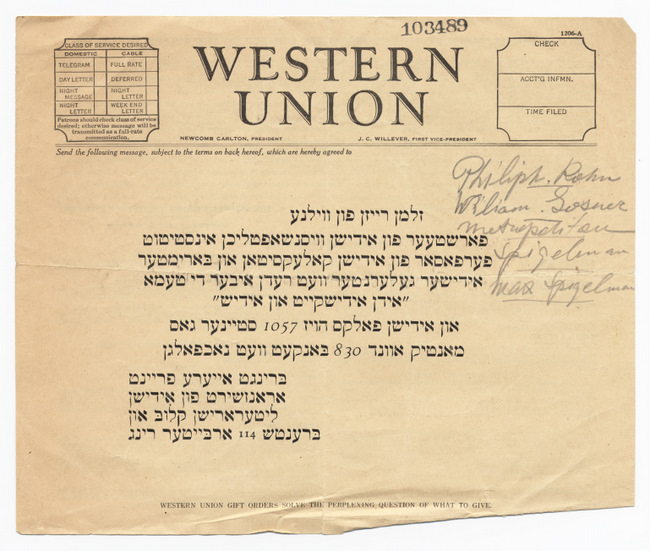 103489
1206-A
CLASS OF SERVICE DESIRED
DOMESTIC CABLE
TELEGRAM FULL RATE
DAY LETTER DEFERRED
NIGHT MESSAGE NIGHT LETTER
NIGHT LETTER WEEK END LETTER
Patrons should check class of service
desired; otherwise message will be
transmitted as a full-rate
communication.
WESTERN
UNION
NEWCOMB CARLTON, PRESIDENT J. C. WILLEVER, FIRST VICE-PRESIDENT
CHECK
ACCT'G INFMN.
TIME FILED
Send the following message, subject to the terms on back hereof, which are hereby agreed to
Philip
William
Metropolitan
Spigelman
Max Spigelman
זלמן רייזן פון ווילנע
פארשטעער פון אידישן וויסנשאפטליכן אינסטיטוט
פערפאסאר פון אידישן קאלעקסיטאן און בארימטער
אידישער געלערנטער וועט רעדן איבער די טעמא
"אידן אידישקייט און אידיש"
און אידישן פאלקס הויז 1057 סטיינער גאס
מאנטיק אוונד 830 באנקעט וועט נאכפאלגן
ברינגט אייערע פריינט
אראנשירט פון אידישן
ליטערארישן קלוב און
ברענטש 114 ארבייטער רינג
WESTERN UNION GIFT ORDERS SOLVE THE PERPLEXING QUESTION OF WHAT TO GIVE.